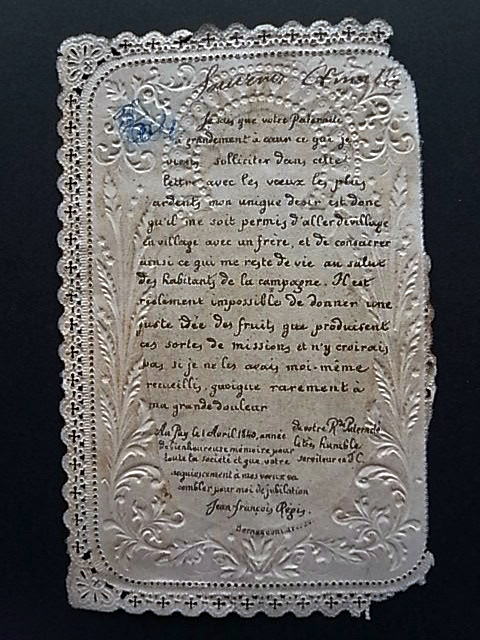 Souvenir
Je sais que votre Paternité
a grandement à cœur ce que je
viens solliciter dans cette
lettre avec les vœux les plus
ardents mon unique desir est donc
qu'il me soit permis d'aller de village
en village avec un frère, et de consacrer
ainsi ce qui me reste de vie au salut
des habitants de la campagne. Il est
réelement impossible de donner une
juste idée des fruits que produisent
ces sortes de missions et n'y croirais
pas si je ne les avais moi-même
recueillis, quoique rarement à
ma grande douleur
Au Puy le 1 Avril 1640, année
de bienheureuse mémoire pour
toute la société et que votre
acquiescement à mes vœux va
combler pour moi de jubilation
de votre Rde Paternité
le très humble
serviteur en J C.
Jean François Régis.